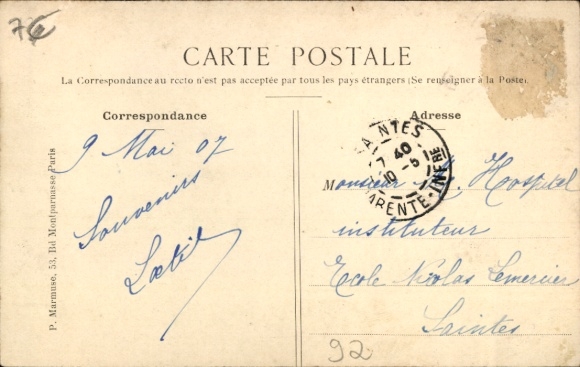 7€
CARTE POSTALE
La Correspondance au recto n'est pas acceptée par tous les pays étrangers (Se renseigner à la Poste)
Correspondance
Adresse
9 Mai 07
Souvenirs
P. Marmuse, 53, Bd Montparnasse Paris
AINTES
7 40
10 - 5
ARENTE - INFRE
Monsieur Hospital
instituteur
Ecole Nicolas Lemercier
Saintes
92